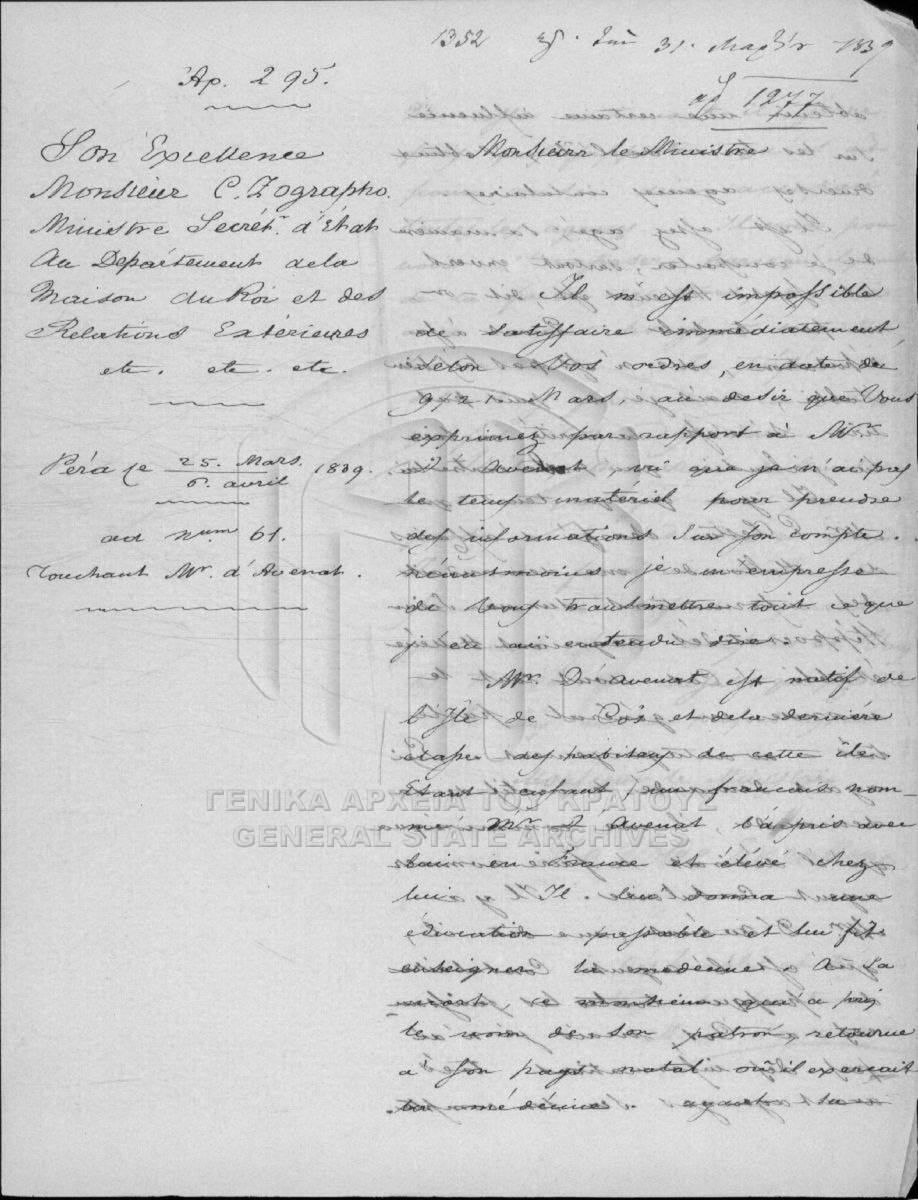 1352
31. Μαρτίου 1839
Αρ. 295.
1277
Son Exellence
Monsieur C. Zographo.
Ministre Secrétr. d'État
Au Département dela
Maison du Roi et des
Relations Extérieures
etc. etc. etc.
Péra le 25. Mars. / 6. avril 1839.
ad Num 61.
Touchant Mr. d'Avenat.
Monsieur le Ministre
Il m'est impossible
de satisfaire immédiatement
selon Vos ordres, en date du
9/21 Mars, au desir que Vous
exprimez par rapport à Mr.
d'Avenat, vû que je n'ai pas
le tems matériel pour prendre
des informations sur son compte.
Néantmoins je m'empresse
de Vous transmettre tout ce que
j'en ai entendu dire
Mr. D'Avenat est natif de
l'Île de et dela dernière
des habitans de cette île.
Etant enfant un français nom-
mé Mr d'Avenat, l'a pris avec
lui en France et élevé chez
lui. Il lui donna une
éducation passable et lui fit
enseigner la medecine. A sa
mort, ce monsieur qui a pris
le nom de son patron, retourna
à son pays natal où il exerçait
la médecine. ayant la
ΓΕΝΙΚΑ ΑΡΧΕΙΑ ΤΟΥ ΚΡΑΤΟΥΣ
GENERAL STATE ARCHIVES